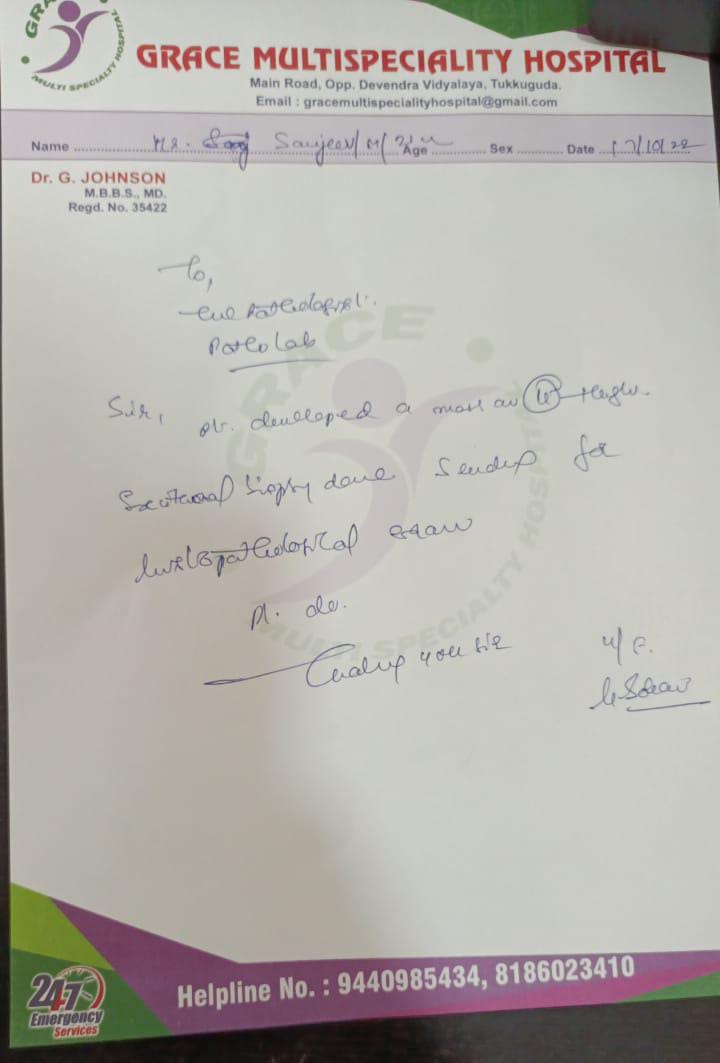 GRACE
MULTI SPECIALITY HOSPITAL
GRACE MULTISPECIALITY HOSPITAL
Main Road, Opp. Devendra Vidyalaya, Tukkuguda.
Email : gracemultispecialityhospital@gmail.com
Name Mr. Sanjeev/M/ Age Sex Date 17/10/22
Dr. G. JOHNSON
M.B.B.S., MD.
Regd. No. 35422
To,
the Pathologist.
Patho Lab
Sir, pt. developed a mass on
Excisional biopsy done Sending for
histopathological exam
pl. do.
Thanking you Sir
GRACE
MULTI SPECIALITY HOSPITAL
24/7
Emergency
Services
Helpline No. : 9440985434, 8186023410